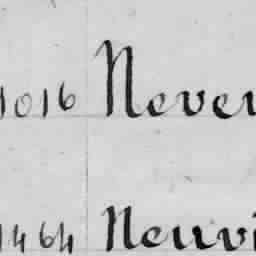 1016 Never
1464 Neuvi